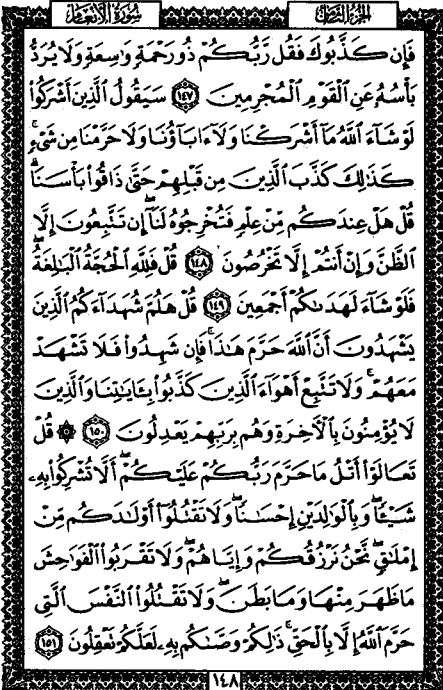 الجزء الثامن
سورة الأنعام
فَإِن كَذَّبُوكَ فَقُل رَّبُّكُمْ ذُو رَحْمَةٍ وَاسِعَةٍ وَلَا يُرَدُّ
بَأْسُهُ عَنِ الْقَوْمِ الْمُجْرِمِينَ ١٤٧ سَيَقُولُ الَّذِينَ أَشْرَكُوا
لَوْ شَاءَ اللَّهُ مَا أَشْرَكْنَا وَلَا ءَابَاؤُنَا وَلَا حَرَّمْنَا مِن شَيْءٍ
كَذَٰلِكَ كَذَّبَ الَّذِينَ مِن قَبْلِهِمْ حَتَّىٰ ذَاقُوا بَأْسَنَا
قُلْ هَلْ عِندَكُم مِّنْ عِلْمٍ فَتُخْرِجُوهُ لَنَا إِن تَتَّبِعُونَ إِلَّا
الظَّنَّ وَإِنْ أَنتُمْ إِلَّا تَخْرُصُونَ ١٤٨ قُلْ فَلِلَّهِ الْحُجَّةُ الْبَالِغَةُ
فَلَوْ شَاءَ لَهَدَىٰكُمْ أَجْمَعِينَ ١٤٩ قُلْ هَلُمَّ شُهَدَاءَكُمُ الَّذِينَ
يَشْهَدُونَ أَنَّ اللَّهَ حَرَّمَ هَٰذَا فَإِن شَهِدُوا فَلَا تَشْهَدْ
مَعَهُمْ وَلَا تَتَّبِعْ أَهْوَاءَ الَّذِينَ كَذَّبُوا بِـَٔايَٰتِنَا وَالَّذِينَ
لَا يُؤْمِنُونَ بِالْءَاخِرَةِ وَهُم بِرَبِّهِمْ يَعْدِلُونَ ١٥٠ ۞ قُلْ
تَعَالَوْا أَتْلُ مَا حَرَّمَ رَبُّكُمْ عَلَيْكُمْ أَلَّا تُشْرِكُوا بِهِ
شَيْـًٔا وَبِالْوَٰلِدَيْنِ إِحْسَٰنًا وَلَا تَقْتُلُوا أَوْلَٰدَكُم مِّنْ
إِمْلَٰقٍ نَّحْنُ نَرْزُقُكُمْ وَإِيَّاهُمْ وَلَا تَقْرَبُوا الْفَوَاحِشَ
مَا ظَهَرَ مِنْهَا وَمَا بَطَنَ وَلَا تَقْتُلُوا النَّفْسَ الَّتِي
حَرَّمَ اللَّهُ إِلَّا بِالْحَقِّ ذَٰلِكُمْ وَصَّىٰكُم بِهِ لَعَلَّكُمْ تَعْقِلُونَ ١٥١
١٤٨